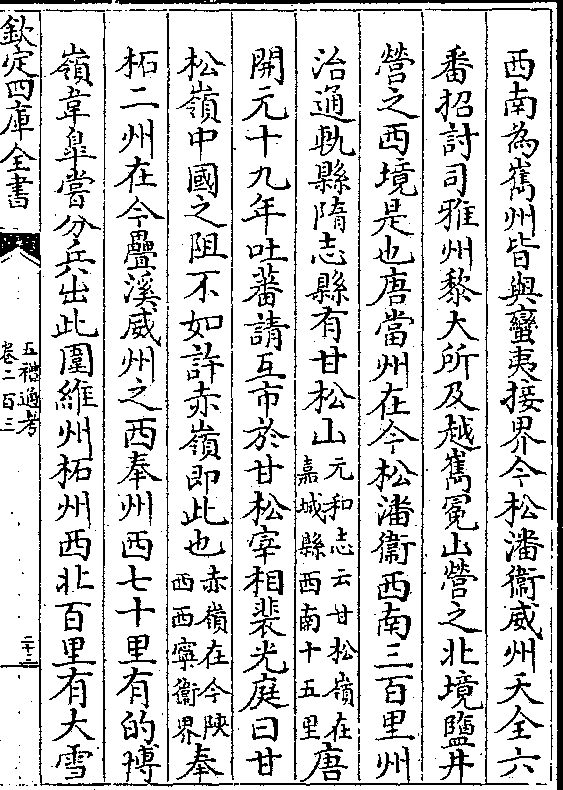 西南為雟州皆與蠻夷接界今松潘衞威州天全六
番招討司雅州黎大所及越雟冕山營之北境鹽井
營之西境是也唐當州在今松潘衞西南三百里州
治通軌縣隋志縣有甘松山元和志云甘松嶺在嘉城縣西南十五里唐
開元十九年吐蕃請互市於甘松宰相裴光庭曰甘
松嶺中國之阻不如許赤嶺即此也赤嶺在今陝西西寧衞界奉
柘二州在今疊溪威州之西奉州西七十里有的博
嶺韋臯嘗分兵出此圍維州柘州西北百里有大雪
欽定四庫全書
五禮通考
卷二百三
二十三